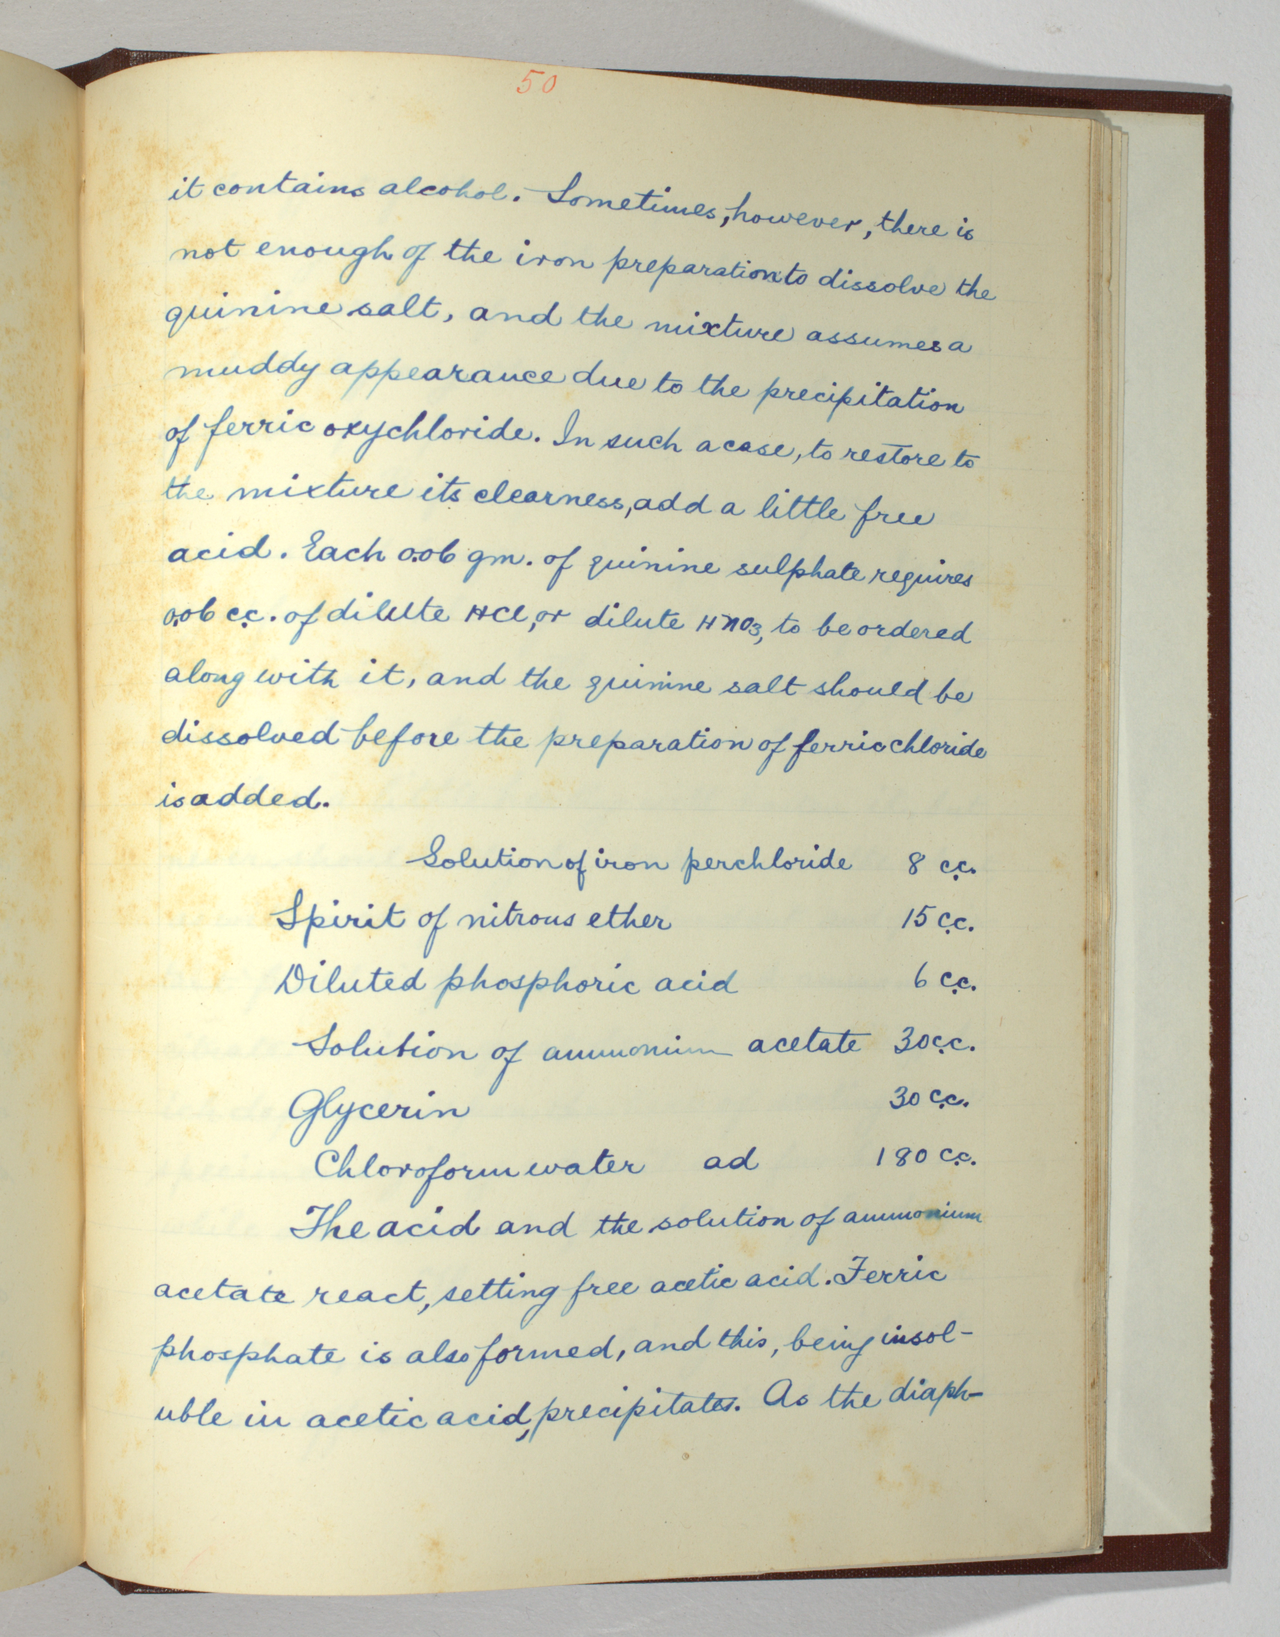 50
it contains alcohol. Sometimes, however, there is
not enough of the iron preparation to dissolve the
quinine salt, and the mixture assumes a
muddy appearance due to the precipitation
of ferric oxychloride. In such a case, to restore to
the mixture its clearness, add a little free
acid. Each 0.06 gm. of quinine sulphate requires
0.06 c.c. of dilute HCl, or dilute HNO3, to be ordered
along with it, and the quinine salt should be
dissolved before the preparation of ferric chloride
is added.
Solution of iron perchloride 8 c.c.
Spirit of nitrous ether 15 c.c.
Diluted phosphoric acid 6 c.c.
Solution of ammonium acetate 30 c.c.
Glycerin 30 c.c.
Chloroform water ad 180 c.c.
The acid and the solution of ammonium
acetate react, setting free acetic acid. Ferric
phosphate is also formed, and this, being insol-
uble in acetic acid, precipitates. As the diaph-